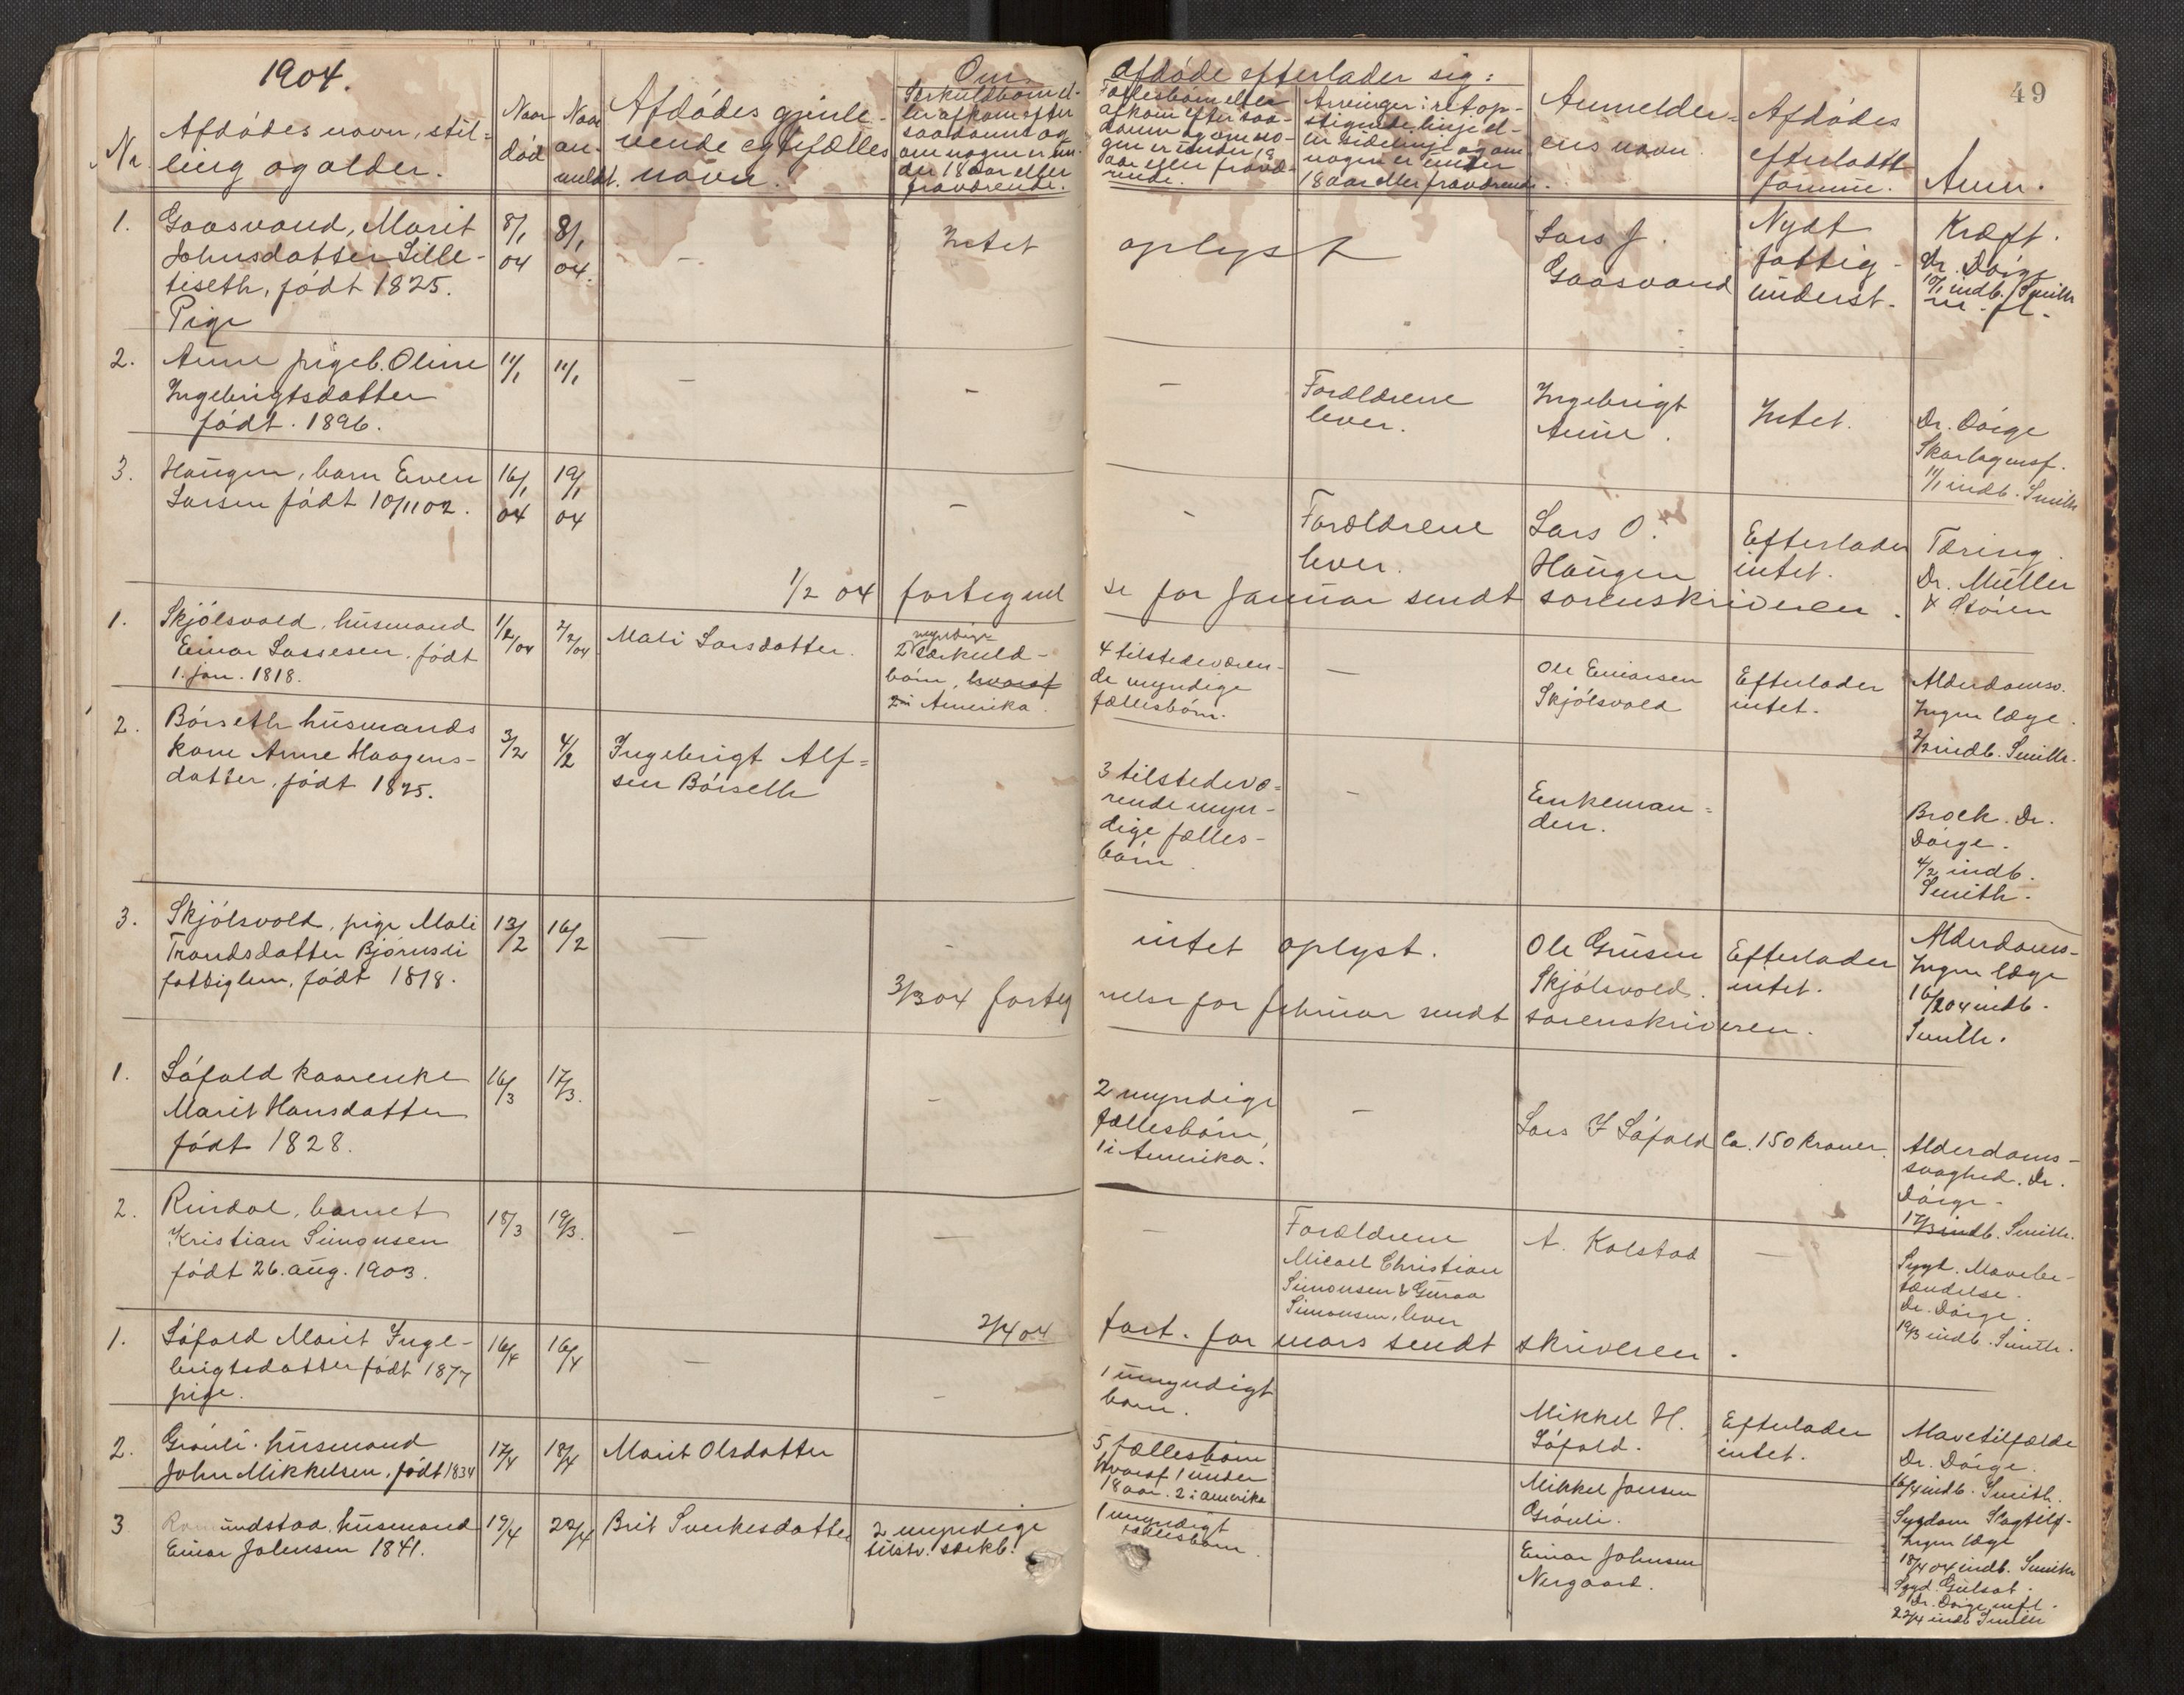 1904.
Nr.
Afdødes navn, stil-
ling og alder.
Naar
død
Naar
an-
meldt.
Afdødes gjenle-
vende egtefælles
navn.
Om
Særkuldbørn el-
ler afkom efter
saadanne og
om nogen er un-
der 18 aar eller
fraværende.
afdøde efterlader sig:
Fællesbørn eller
afkom efter saa-
danne og om no-
gen er under 18
aar eller fravæ-
rende.
Arvinger i ret op-
stigende linje el-
ler sidelinje og om
nogen er under
18 aar eller fraværende.
Anmelder-
ens navn.
Afdødes
efterladte
formue.
Anm.
49
1.
Gaasvand, Marit
Johnsdatter Lille-
tiseth, født 1825.
Pige
8/1
04
8/1
04.
—
Intet
oplyst
Lars J.
Gaasvand
Nydt
fattig-
underst.
Kræft.
Dr. Døige
10/1 indb. / Smith
2.
Aune pigeb. Oline
Ingebrigtsdatter
født. 1896.
11/1
11/1
—
—
—
Forældrene
lever.
Ingebrigt
Aune.
Intet.
Dr. Døige
Skarlagensf.
11/1 indb. Smith
3.
Haugen, barn Even
Larsen født 10/11 02.
16/1
04
19/1
04
—
—
Forældrene
lever.
Lars O.
Haugen
Efterlader
intet.
Tæring.
Dr. Müller
x Støren
1/2 04 fortegnel
se for Januar sendt sorenskriveren.
1.
Skjølsvold, husmand
Einar Lassesen. født
1. jan. 1818.
1/2/04
2/2/04
Mali Larsdatter.
myndige
2 særkuld-
børn, hvoraf
2 i Amerika.
4 tilstedeværen-
de myndige
fællesbørn.
—
Ole Einarsen
Skjølsvold
Efterlader
intet.
Alderdomsv.
Ingen læge.
2/2 indb. Smith.
2.
Børseth husmands
kone Anne Haagens-
datter, født 1825.
3/2
4/2
Ingebrigt Alf-
sen Børseth
3 tilstedevæ-
rende myn-
dige fælles-
børn.
—
Enkeman-
den.
Brok. Dr.
Døige.
4/2 indb.
Smith.
3.
Skjølsvold, pige Mali
Trondsdatter Bjørnsli
fattiglem, født 1818.
13/2
16/2
—
—
intet oplyst.
Ole Gunsen
Skjølsvold.
Efterlader
intet.
Alderdoms-
Ingen læge
16/2 04 indb.
Smith.
3/3 04 forteg
nelse for februar sendt sorenskriveren.
1.
Løfald kaarenke
Marit Hansdatter
født 1828.
16/3
17/3.
—
2 myndige
fællesbørn,
1 i Amerika.
—
Lars I Løfald
Ca. 150 kroner.
Alderdoms-
svaghed. Dr.
Døige.
17/3 indb. Smith.
2.
Rindal, barnet
Kristian Simonsen
født 26. aug. 1903.
18/3
19/3.
—
—
—
Forældrene
Micael Christian
Simonsen & Guraa
Simonsen, lever
A. Kolstad
—
Sygd. Mavebe-
tændelse.
Dr. Døige.
19/3 indb. Smith.
2/4 04
fort. for mars sendt skriveren.
1.
Løfald Marit Inge-
brigtsdatter født 1877
pige.
16/4
16/4
—
—
1 umyndigt
barn.
Mikkel H.
Løfald.
Efterlader
intet.
Mavetilfælde
Dr. Døige.
16/4 indb. Smith.
2.
Grønli. husmand
John Mikkelsen, født 1834
17/4
18/4
Marit Olsdatter
5 fællesbørn
hvoraf 1 under
18 aar. 2 i amerika
Mikkel Jonsen
Grønli.
Sygdom Slagtilf-
Ingen læge
18/4 04 indb. Smith
3
Romundstad, husmand
Einar Johnsen 1841.
19/4
22/4
Brit Sverkesdatter
2 myndige
tilstv. særkb.
1 umyndigt
fællesbarn.
Einar Johnsen
Nergaard.
Sygd. Gulsot.
Dr. Døige
22/4 indb Smith